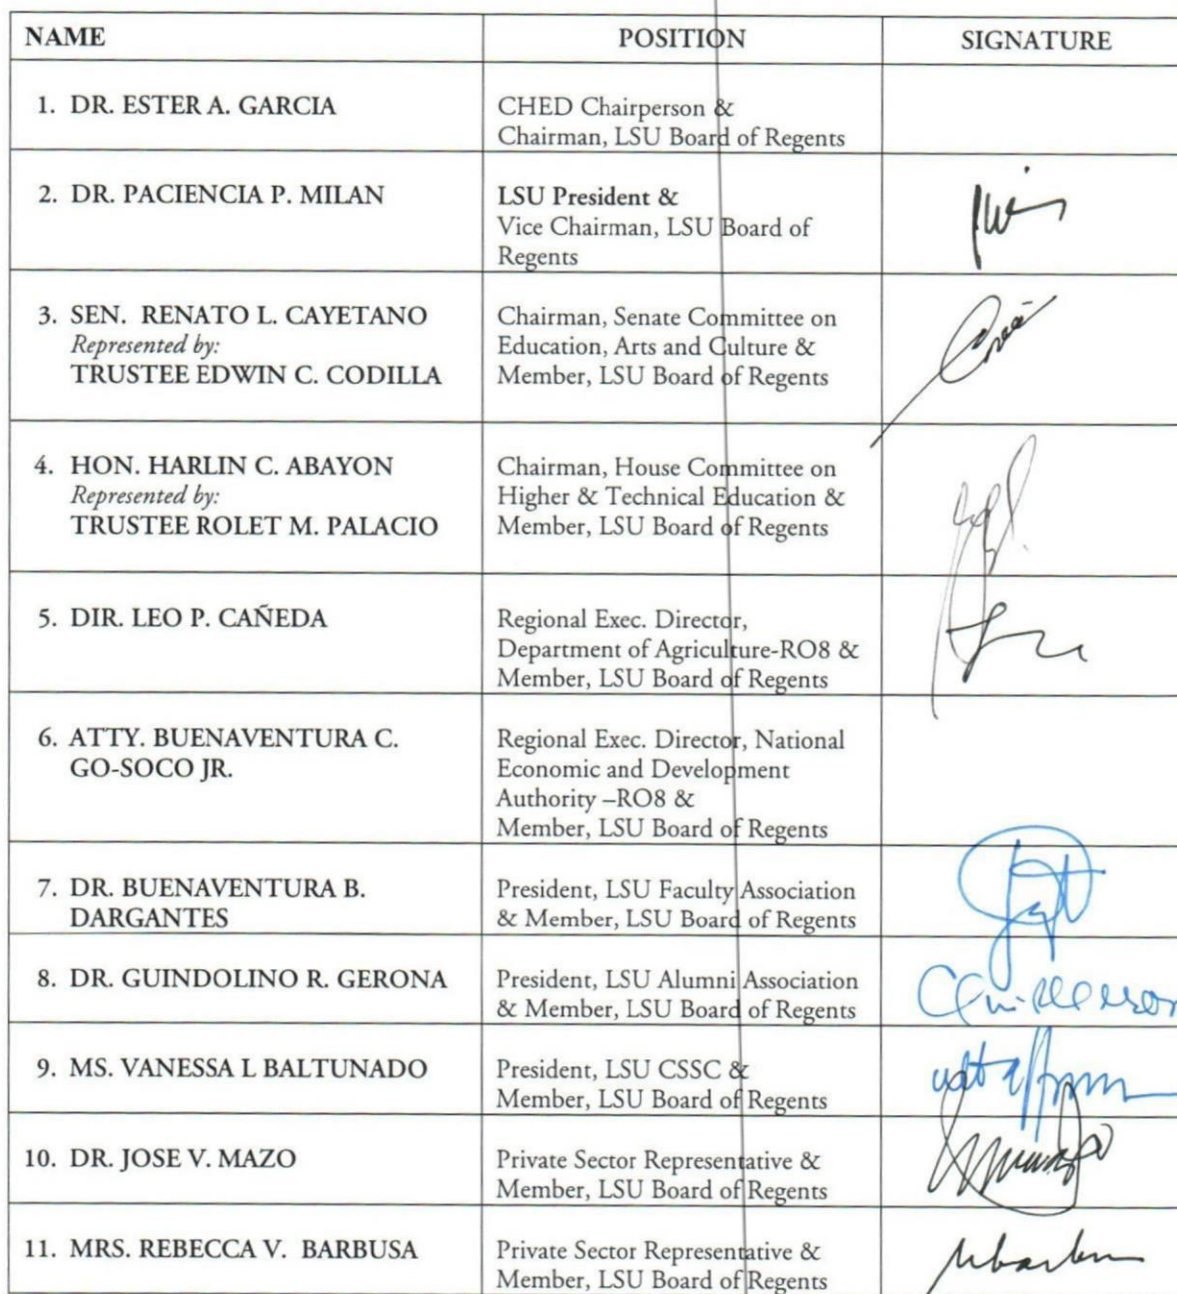 NAME POSITION SIGNATURE
1. DR. ESTER A. GARCIA CHED Chairperson &
Chairman, LSU Board of Regents
2. DR. PACIENCIA P. MILAN LSU President &
Vice Chairman, LSU Board of
Regents
3. SEN. RENATO L. CAYETANO Chairman, Senate Committee on
Represented by: Education, Arts and Culture &
TRUSTEE EDWIN C. CODILLA Member, LSU Board of Regents
4. HON. HARLIN C. ABAYON Chairman, House Committee on
Represented by: Higher & Technical Education &
TRUSTEE ROLET M. PALACIO Member, LSU Board of Regents
5. DIR. LEO P. CAÑEDA Regional Exec. Director,
Department of Agriculture-RO8 &
Member, LSU Board of Regents
6. ATTY. BUENAVENTURA C. Regional Exec. Director, National
GO-SOCO JR. Economic and Development
Authority –RO8 &
Member, LSU Board of Regents
7. DR. BUENAVENTURA B. President, LSU Faculty Association
DARGANTES & Member, LSU Board of Regents
8. DR. GUINDOLINO R. GERONA President, LSU Alumni Association
& Member, LSU Board of Regents
9. MS. VANESSA L BALTUNADO President, LSU CSSC &
Member, LSU Board of Regents
10. DR. JOSE V. MAZO Private Sector Representative &
Member, LSU Board of Regents
11. MRS. REBECCA V. BARBUSA Private Sector Representative &
Member, LSU Board of Regents